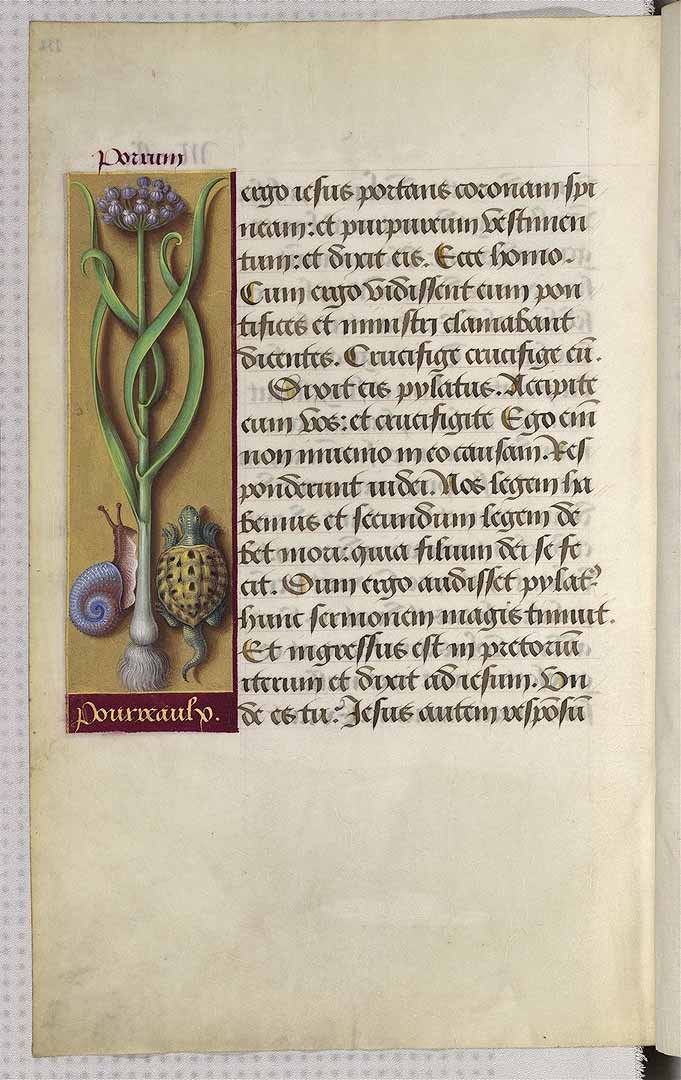 Porrum
ergo iesus portans coronam spi
neam: et purpureum vestimen
tum: et dixit eis. Ecce homo.
Cum ergo vidissent eum pon
tifices et ministri clamabant
dicentes. Crucifige crucifige eũ.
Dixit eis pylatus. Accipite
eum vos: et crucifigite Ego eni̅
non invenio in eo causam. Res
ponderunt iudei. Nos legem ha
bemus et secundum legem de
bet mori: quia filium dei se fe
cit. Dum ergo audisset pylatꝰ
hunc sermonem magis timuit.
Et ingressus est in pretoriũ
iterum et dixit ad iesum. Vn
de es tu? Jesus autem responsũ
Pourreaulx.